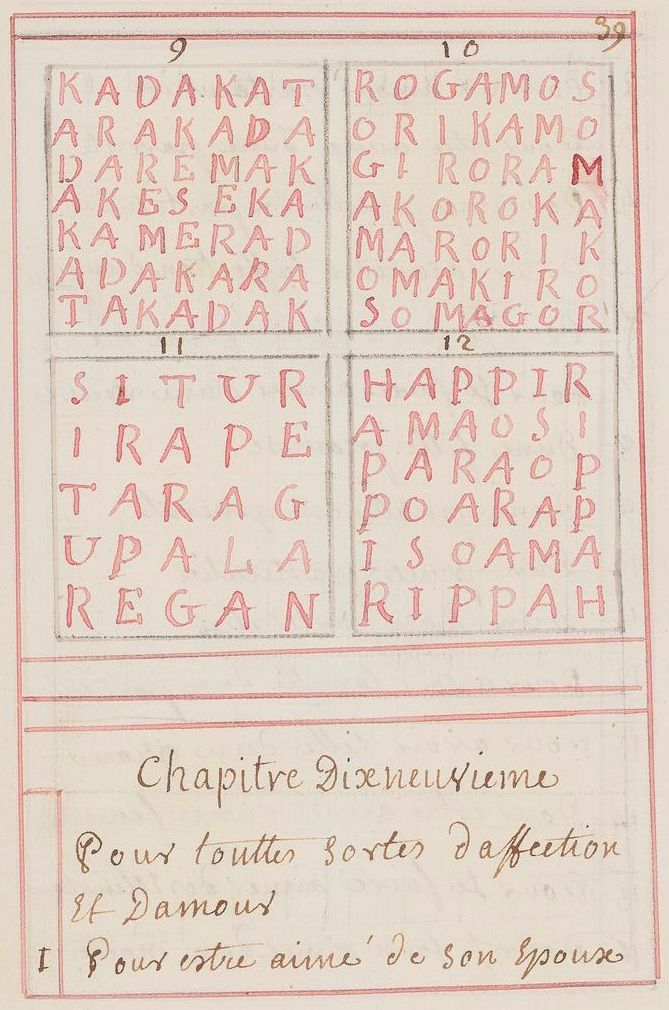 39
9
KADAKAT
ARAKADA
DAREMAK
AKESEKA
KAMERAD
ADAKARA
TAKADAK
10
ROGAMOS
ORIKAMO
GIRORAM
AKOROKA
MARORIK
OMAKIRO
SOMAGOR
11
SITUR
IRAPE
TARAG
UPALA
REGAN
12
HAPPIR
AMAOSI
PARAOP
POARAP
ISOAMA
RIPPAH
Chapitre Dixneuvieme
Pour touttes sortes daffection
Et Damour
I Pour estre aimé de son Epoux